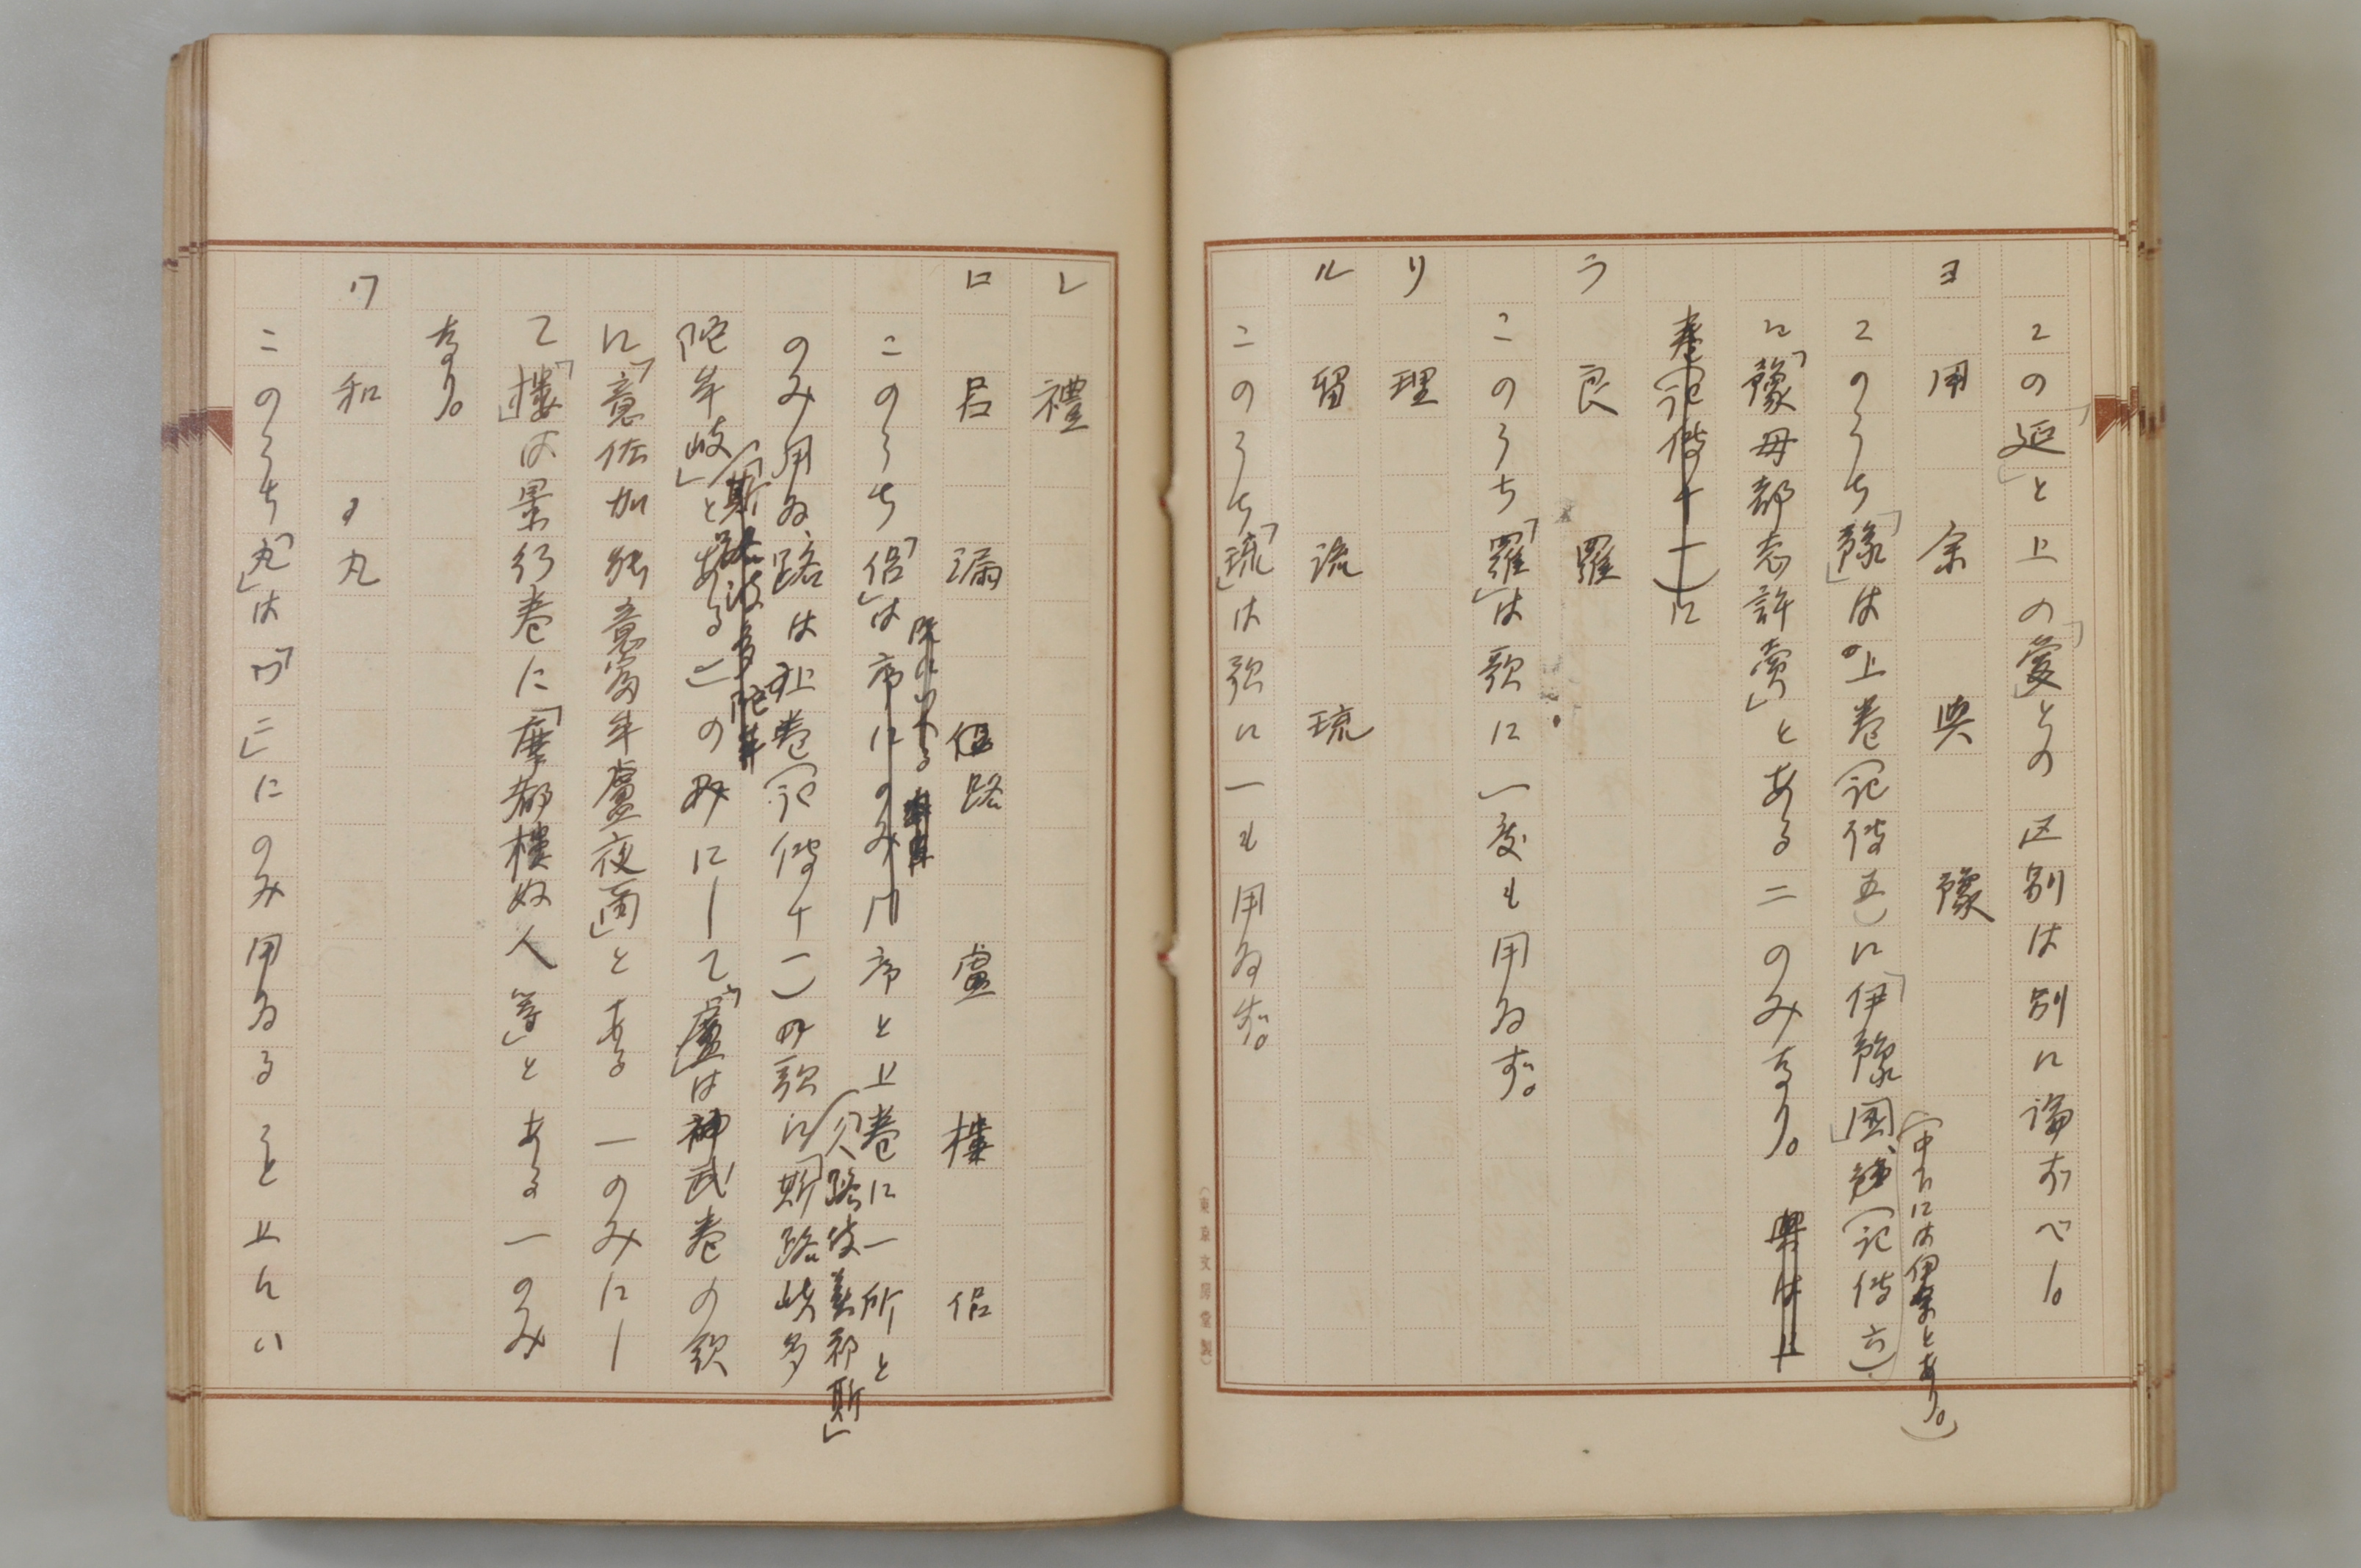 この「延」と上の「愛」との区別は別に論ずべし。
ヨ 用 余 與 豫
このうち「豫」は上巻(記傳五)に「伊豫国」、(記傳六)
(中下には伊余とあり。)
に「豫母都志許賣」とある二のみなり。
巻(記傳十一)に
ラ 良 羅
このうち「羅」は歌に一度も用ゐず。
リ 理
ル 留 流 琉
このうち「琉」は歌に一も用ゐず。
(東京文房堂製)
レ 禮
ロ 呂 漏 路 盧 樓 侶
このうち「侶」は序にのみ 序と上巻に一所と
のみ用ゐ、路は上巻(記傳十一)の歌に「斯路岐多
陀牟岐」とある の み にして、「盧」は神武巻の歌
に「意佐加能意富牟盧夜爾」とある一のみにし
て「樓」は景行巻に「摩都樓奴人等」とある一のみ
なり。
ワ 和 丸
このうち「丸」は「丸邇」にのみ用ゐること上にい